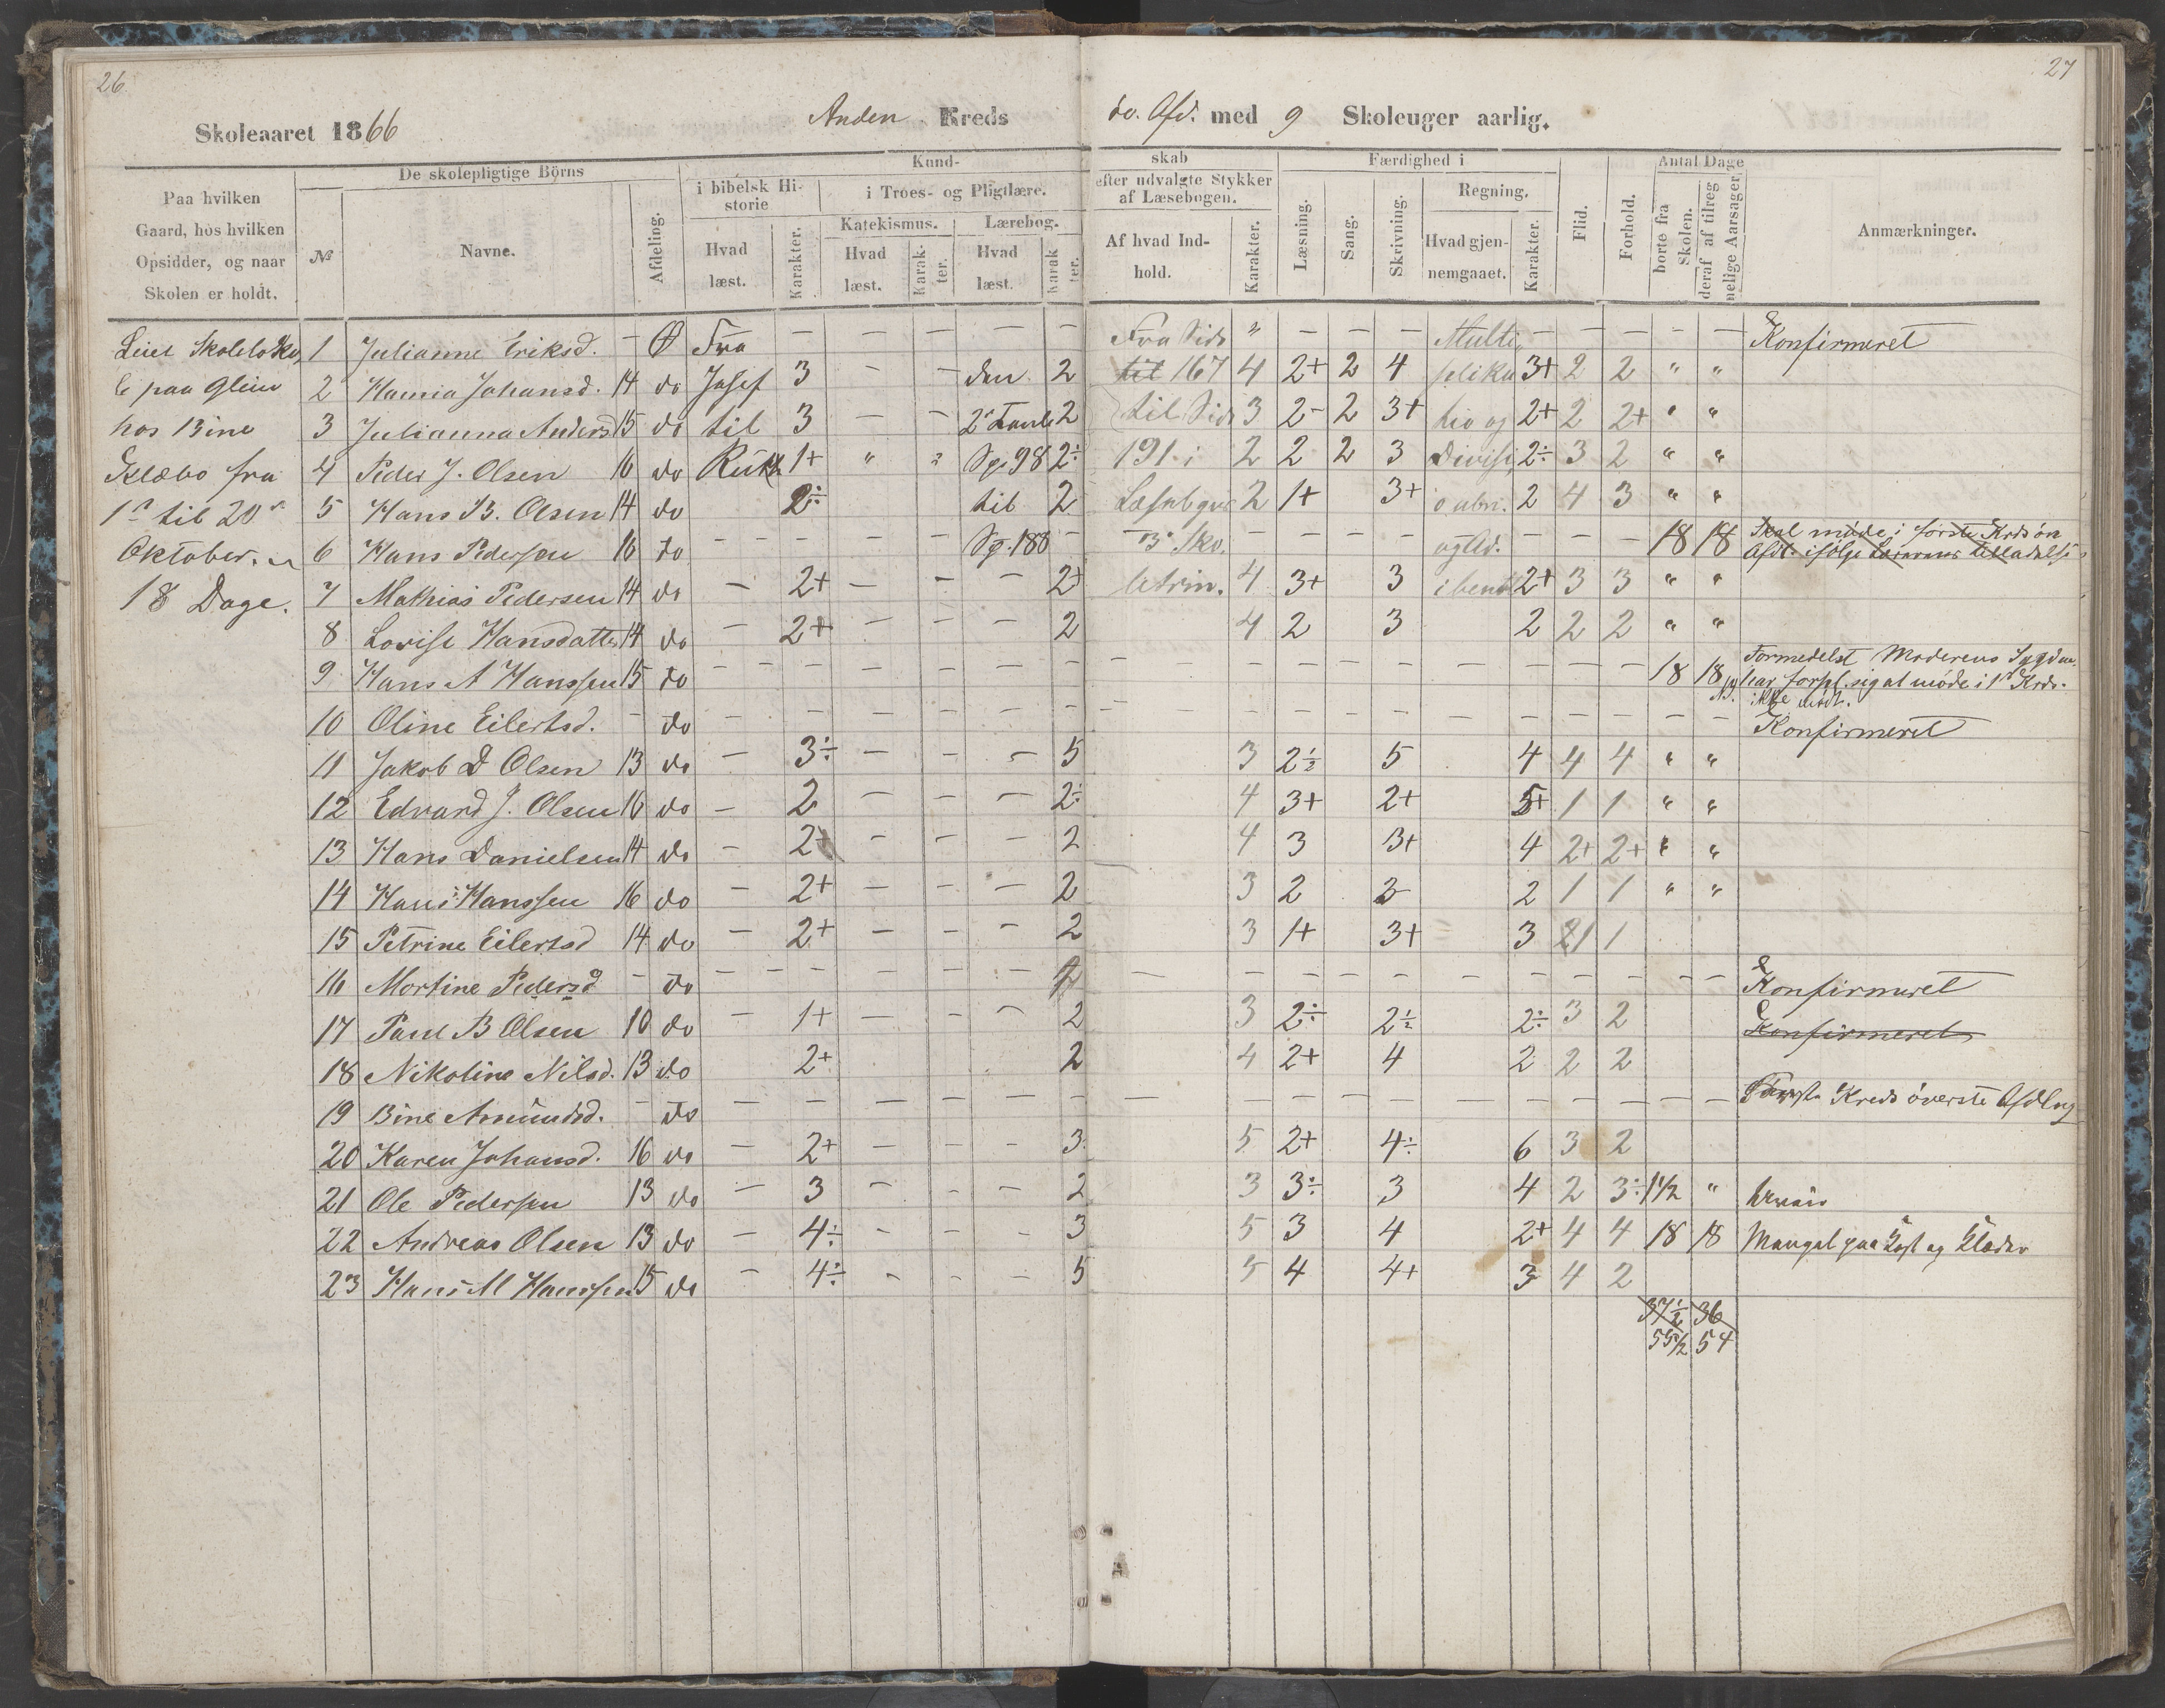 26
27
Skoleaaret 1866
Anden Kreds
do. Afd. med 9 Skoleuger aarlig.
Paa hvilken
Gaard, hos hvilken
Opsidder, og naar
Skolen er holdt.
De skolepligtige Börns
№
Navne.
Afdeling.
Kund-
i bibelsk Hi-
storie
Hvad
læst.
Karakter.
i Troes- og Pligtlære.
Katekismus.
Hvad
læst.
Karak-
ter.
Lærebog.
Hvad
læst.
Karak
ter.
skab
efter udvalgte Stykker
af Læsebogen.
Af hvad Ind-
hold.
Karakter.
Færdighed i
Læsning.
Sang.
Skrivning.
Regning.
Hvad gjen-
nemgaaet.
Karakter.
Flid.
Forhold.
Antal Dage
borte fra
Skolen.
deraf af tilreg
nelige Aarsager.
Anmærkninger.
Leiet Skoleloka,
le paa Glein
hos Bine
Klæbo fra
1ste til 20de
Oktober.
18 Dage.
1 Julianne Eriksd. – Ø Fra – – – – – Fra Side " – – – Multi – – – – – Konfirmeret
2 Hamia Johansd. 14 do Josef 3 – – den 2 til 167 4 2+ 2 4 plika 3+ 2 2 " "
3 Julianna Andersd 15 do til 3 – – 2den 2 til Side 3 2- 2 3+ tio og 2+ 2 2+ " "
4 Peder J. Olsen 16 do Ruth 1+ " " Sp. 98 2÷ 191 i 2 2 2 3 Divisi 2÷ 3 2 " "
5 Hans B. Olsen 14 do 2÷ til 2 2 1+ 3+ 2 4 3 " "
6 Hans Pedersen 16 do – – – – Sp. 188 – 3. Sko. – – – – og Ad. – – – 18 18 Skal møde i første Kreds
7 Mathias Pedersen 14 do – 2+ – – – 2+ letrin. 4 3+ 3 2+ 3 3 " "
8 Lovise Hansdatter 14 do – 2+ – – – 2 4 2 3 2 2 2 " "
9 Hans A Hanssen 15 do – – – – – – – – – – – – – – 18 18 Formedelst Moderens Sygdom
har forpl. sig at møde i 1ste Kreds.
ikke mødt.
10 Oline Eilertsd. – do – – – – – – – – – – – – – – – – Konfirmeret
11 Jakob D Olsen 13 do – 3÷ – – – 5 3 2½ 5 4 4 4 " "
12 Edvard J. Olsen 16 do – 2 – – – 2÷ 4 3+ 2+ 5+ 1 1 " "
13 Hans Danielsen 14 do – 2+ – – – 2 4 3 3+ 4 2+ 2+ " "
14 Hans Hanssen 16 do – 2+ – – – 2 3 2 3 2 1 1 " "
15 Petrine Eilertsd 14 do – 2+ – – – 2 3 1+ 3+ 3 1 1
16 Mortine Pedersd – do – – – – – – – – – – – – – – – Konfirmeret
17 Paul B Olsen 10 do – 1+ – – – 2 3 2÷ 2½ 2÷ 3 2 Konfirmeret
18 Nikoline Nilsd. 13 do 2+ 2 4 2+ 4 2 2 2
19 Bine Amundsd. – do – – – – – – – – – – – – – – – – Første Kreds överste Afdling
20 Karen Johansd. 16 do – 2+ – – – 3 5 2+ 4÷ 6 3 2
21 Ole Pedersen 13 do – 3 – – – 2 3 3÷ 3 4 2 3÷ 1½ "
22 Andreas Olsen 13 do – 4÷ – – – 3 5 3 4 2+ 4 4 18 18 Mangel paa Kost og Klæder
23 Hans M Hanssen 15 do – 4÷ – – – 5 5 4 4+ 3 4 2
37½ 36
55½ 54